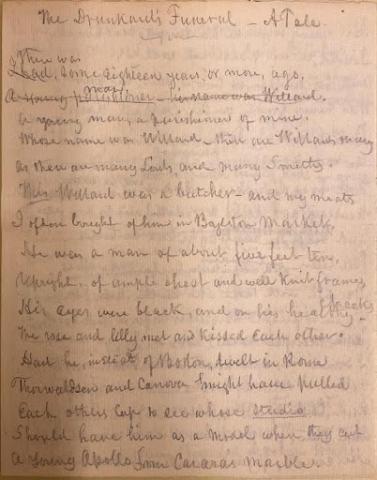 The Drunkard's Funeral – A Tale.
There was
Lad, some eighteen years, or more, ago,
man
A young parishioner – his name was Willard.
A young man, a parishioner of mine.
Whose name was Willard – there are Willards many
as there are many and many Smiths.
This Willard was a butcher – and my meats
I often bought of him in Boylston Market,
He was a man of about five feet ten,
Upright, of ample chest and well knit frame,
His eyes were black, and on his healthy cheeks
The rose and lilly met and kissed each other.
Had he, instead of Boston, dwelt in Rome
Thorwaldsen and Canova might have pulled
Each others Cap to see whose studio
Should have him as a model when they cut
a young Apollo from Carara's Marble.